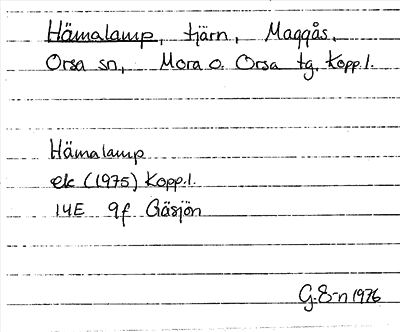 Hämalamp, tjärn, Maggås.
Orsa sn, Mora o. Orsa tg, Kopp.l.
Hämalamp
ek (1975) Kopp.l.
14E 9f Gåsjön
G.S-n 1976